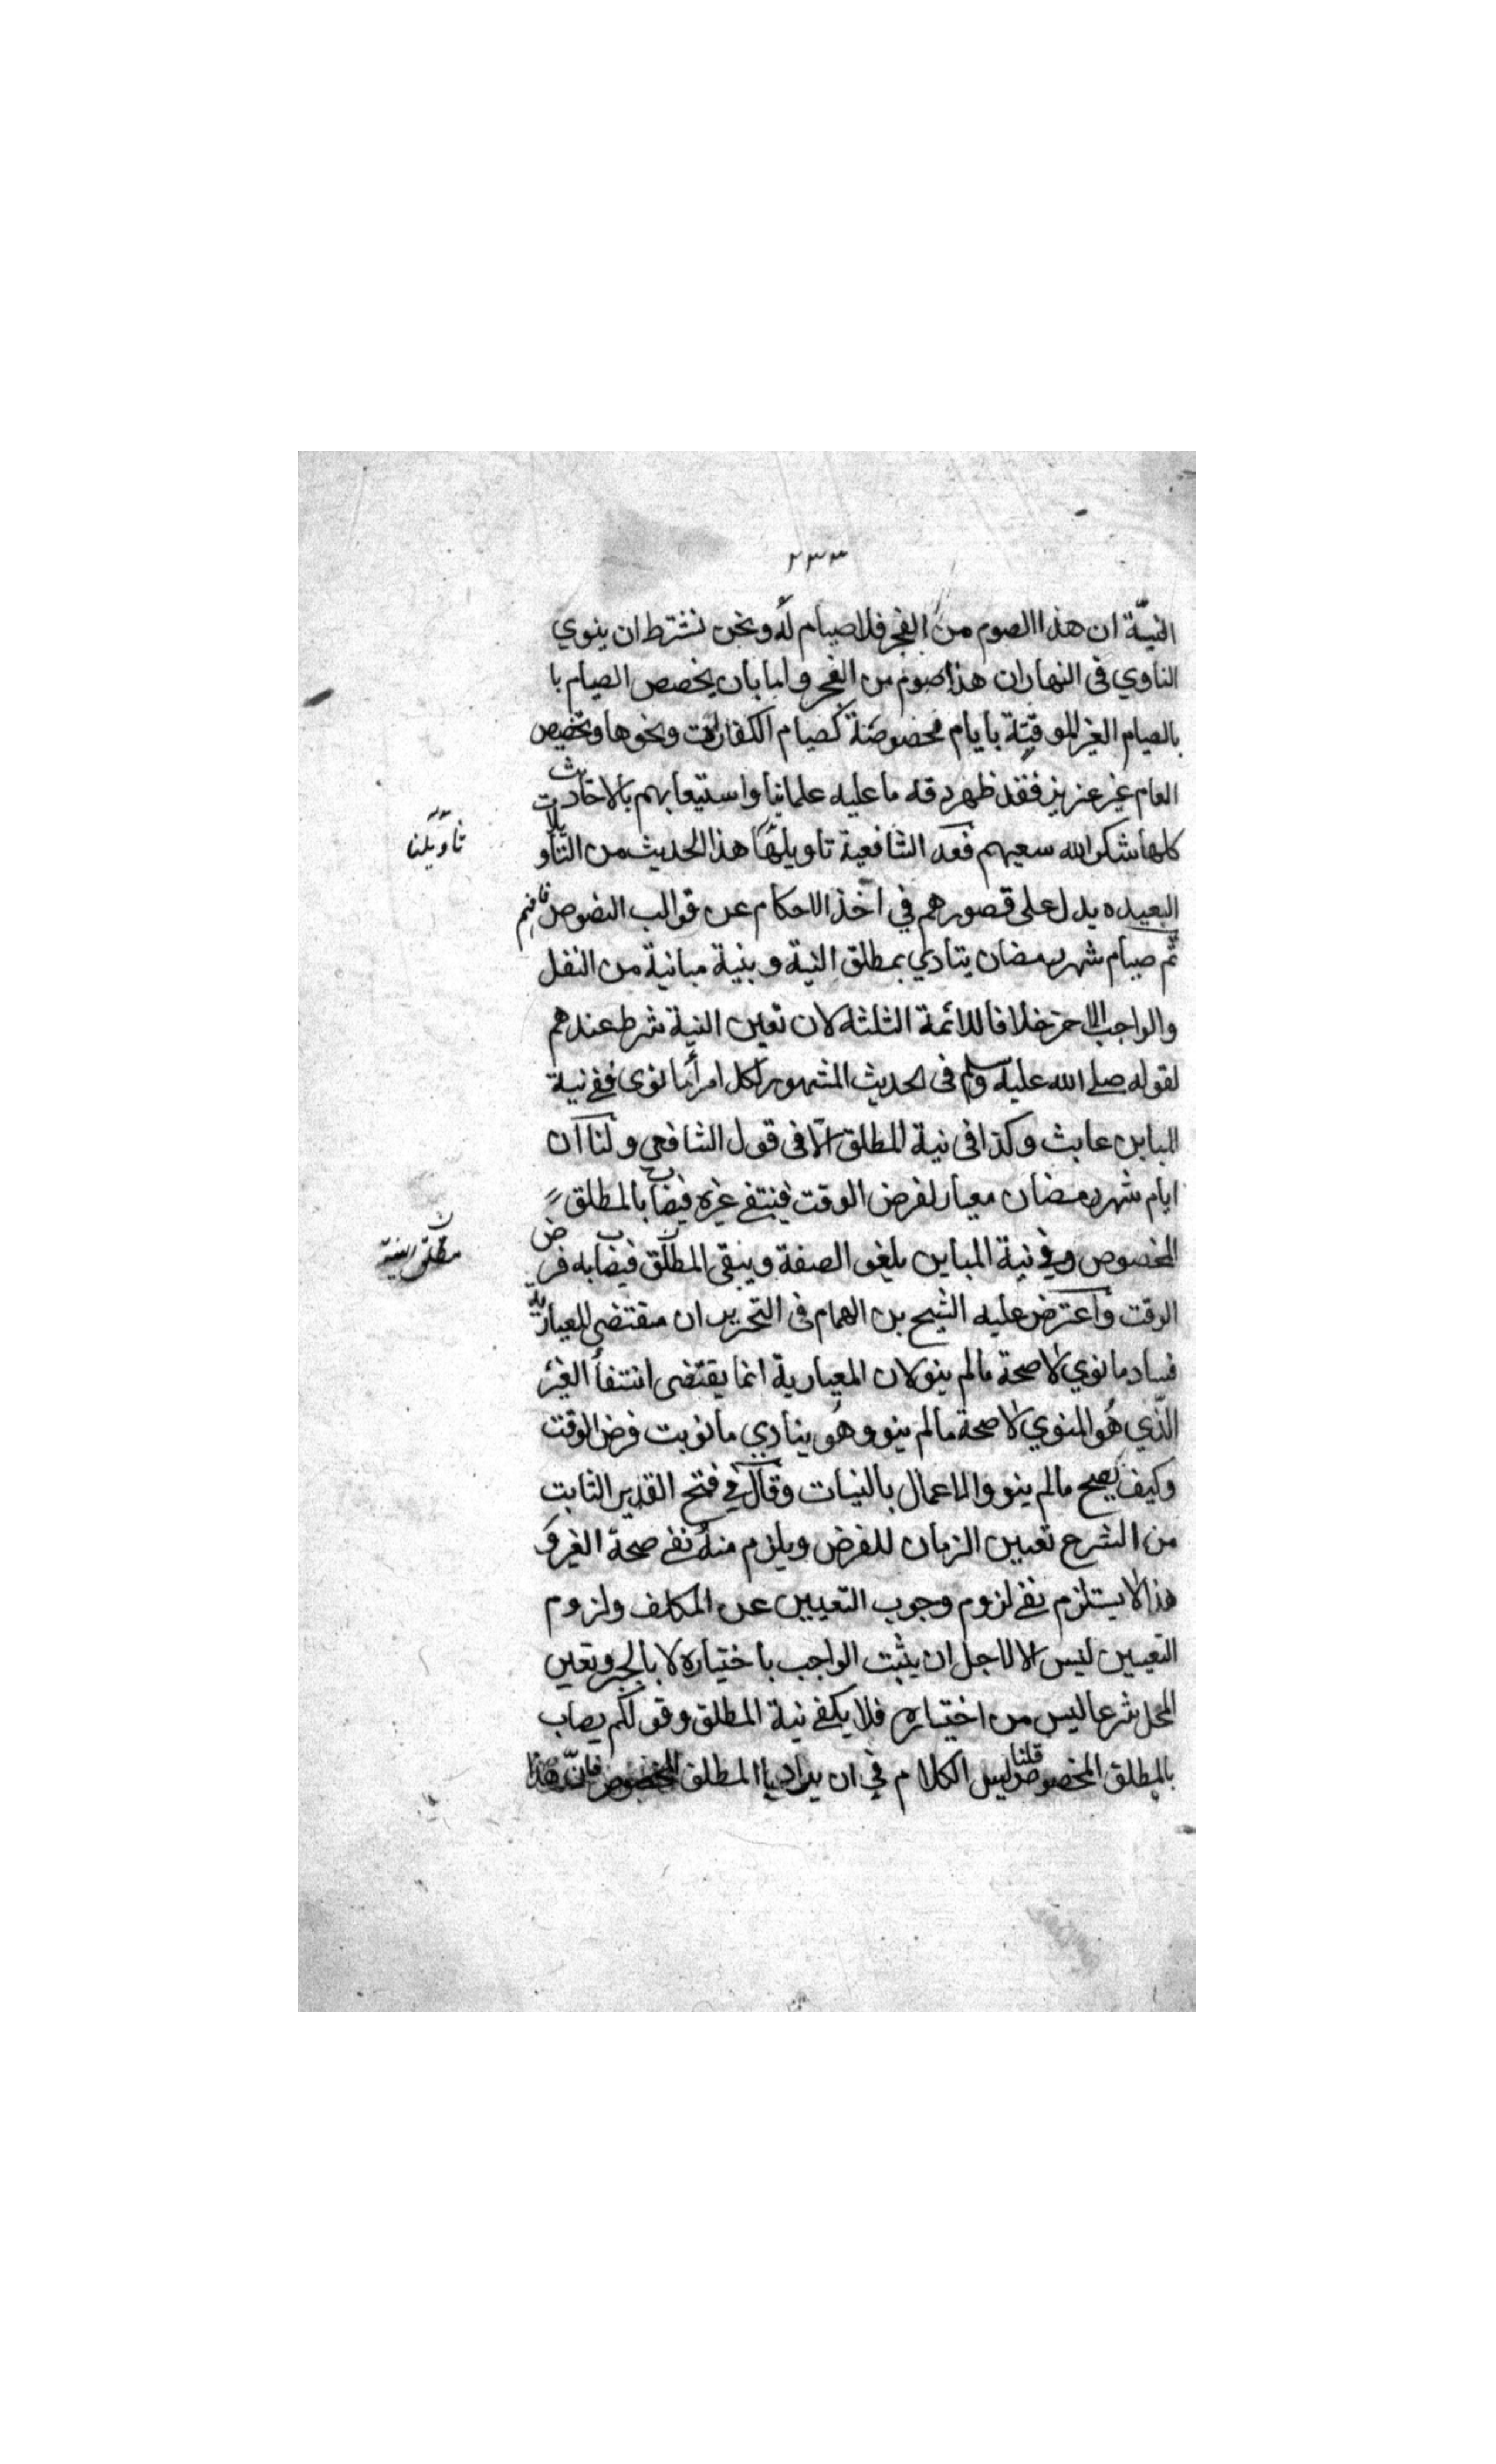 ٢٣٣
النيّة ان هذا الصوم من الفجر فلا صيام له ونحن نشترط ان ينوي
الناوي في النهار ان هذا صوم من الفجر واما بان يخصص الصيام با
بالصيام الغير الموقتة بايام مخصوصة كصيام الكفارات ونحوها وتخصيص
العام غير عزيز فقد ظهر دقة ما عليه علمائنا واستيعابهم بالاحاديث
كلها شكر الله سعيهم فعد الشافعية تاويلها هذا الحديث من التأويلات
تأويلنا
البعيده يدل على قصورهم في اخذ الاحكام عن قوالب النصوص فافهم
ثم صيام شهر رمضان يتادي بمطلق النية وبنية مباينة من النفل
والواجب الاخر خلافا للائمة الثلثة لان تعين النية شرط عندهم
لقوله صلى الله عليه وسلم في الحديث المشهور لكل امرأ ما نوى ففي نية
المباين عابث وكذا في نية المطلق الا في قول الشافعي ولنا ان
ايام شهر رمضان معيار لفرض الوقت فينتفي غيره فيصاب بالمطلق
المخصوص وفي نية المباين يلغو الصفة ويبقى المطلق فيصاب به فرض
مطلق النية
الوقت واعترض عليه الشيخ بن الهمام في التحرير ان مقتضي المعيارية
فساد ما نوي لا صحة ما لم ينو لان المعيارية انما يقتضى انتفأ الغير
الذي هو المنوي لا صحة ما لم ينو وهو ينادي ما نويت فرض الوقت
وكيف يصح ما لم ينو والاعمال بالنيات وقال في فتح القدير الثابت
من الشرع تعيين الزمان للفرض ويلزم منه نفي صحة الغير و
هذا لا يستلزم نفي لزوم وجوب التعيين عن المكلف ولزوم
التعيين ليس الا لاجل ان يثبت الواجب باختياره لا بالجبر وتعين
المحل شرعا ليس من اختياره فلا يكفي نية المطلق وقولكم يصاب
بالمطلق المخصوص قلنا ليس الكلام في ان يراد بالمطلق المخصوص فان هذا